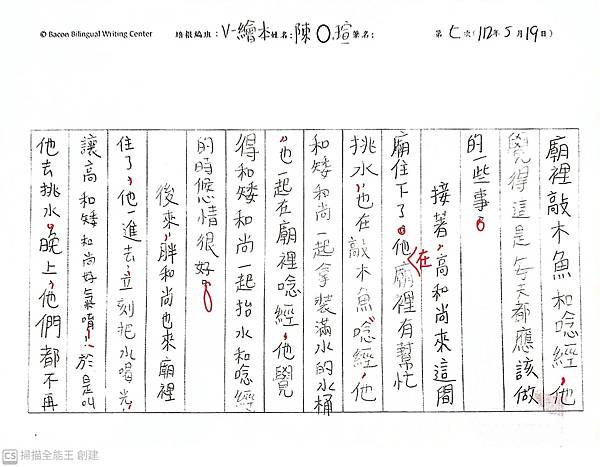 © Bacon Bilingual Writing Center 培根編班：V-繪本 姓名：陳〇瑄 筆名： 第七次(112年5月19日)
廟裡敲木魚和唸經，他
覺得這是每天都應該做
的一些事。
接著，高和尚來這間
廟住下了。他在廟裡有幫忙
挑水，也在敲木魚、唸經，他
和矮和尚一起拿裝滿水的水桶
，也一起在廟裡唸經，他覺
得和矮和尚一起抬水和唸經
的時候心情很好。
後來，胖和尚也來廟裡
住了，他一進去，立刻把水喝光，
讓高和矮和尚好氣唷！於是叫
他去挑水，晚上，他們都不再
CS 掃描全能王 創建